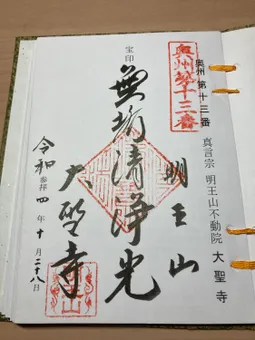 奥州 第十三番
真言宗 明王山不動院 大聖寺
奥州第十三番
明王山
宝印
無垢清浄光
大聖寺
令和四年十月二十八日
参拝